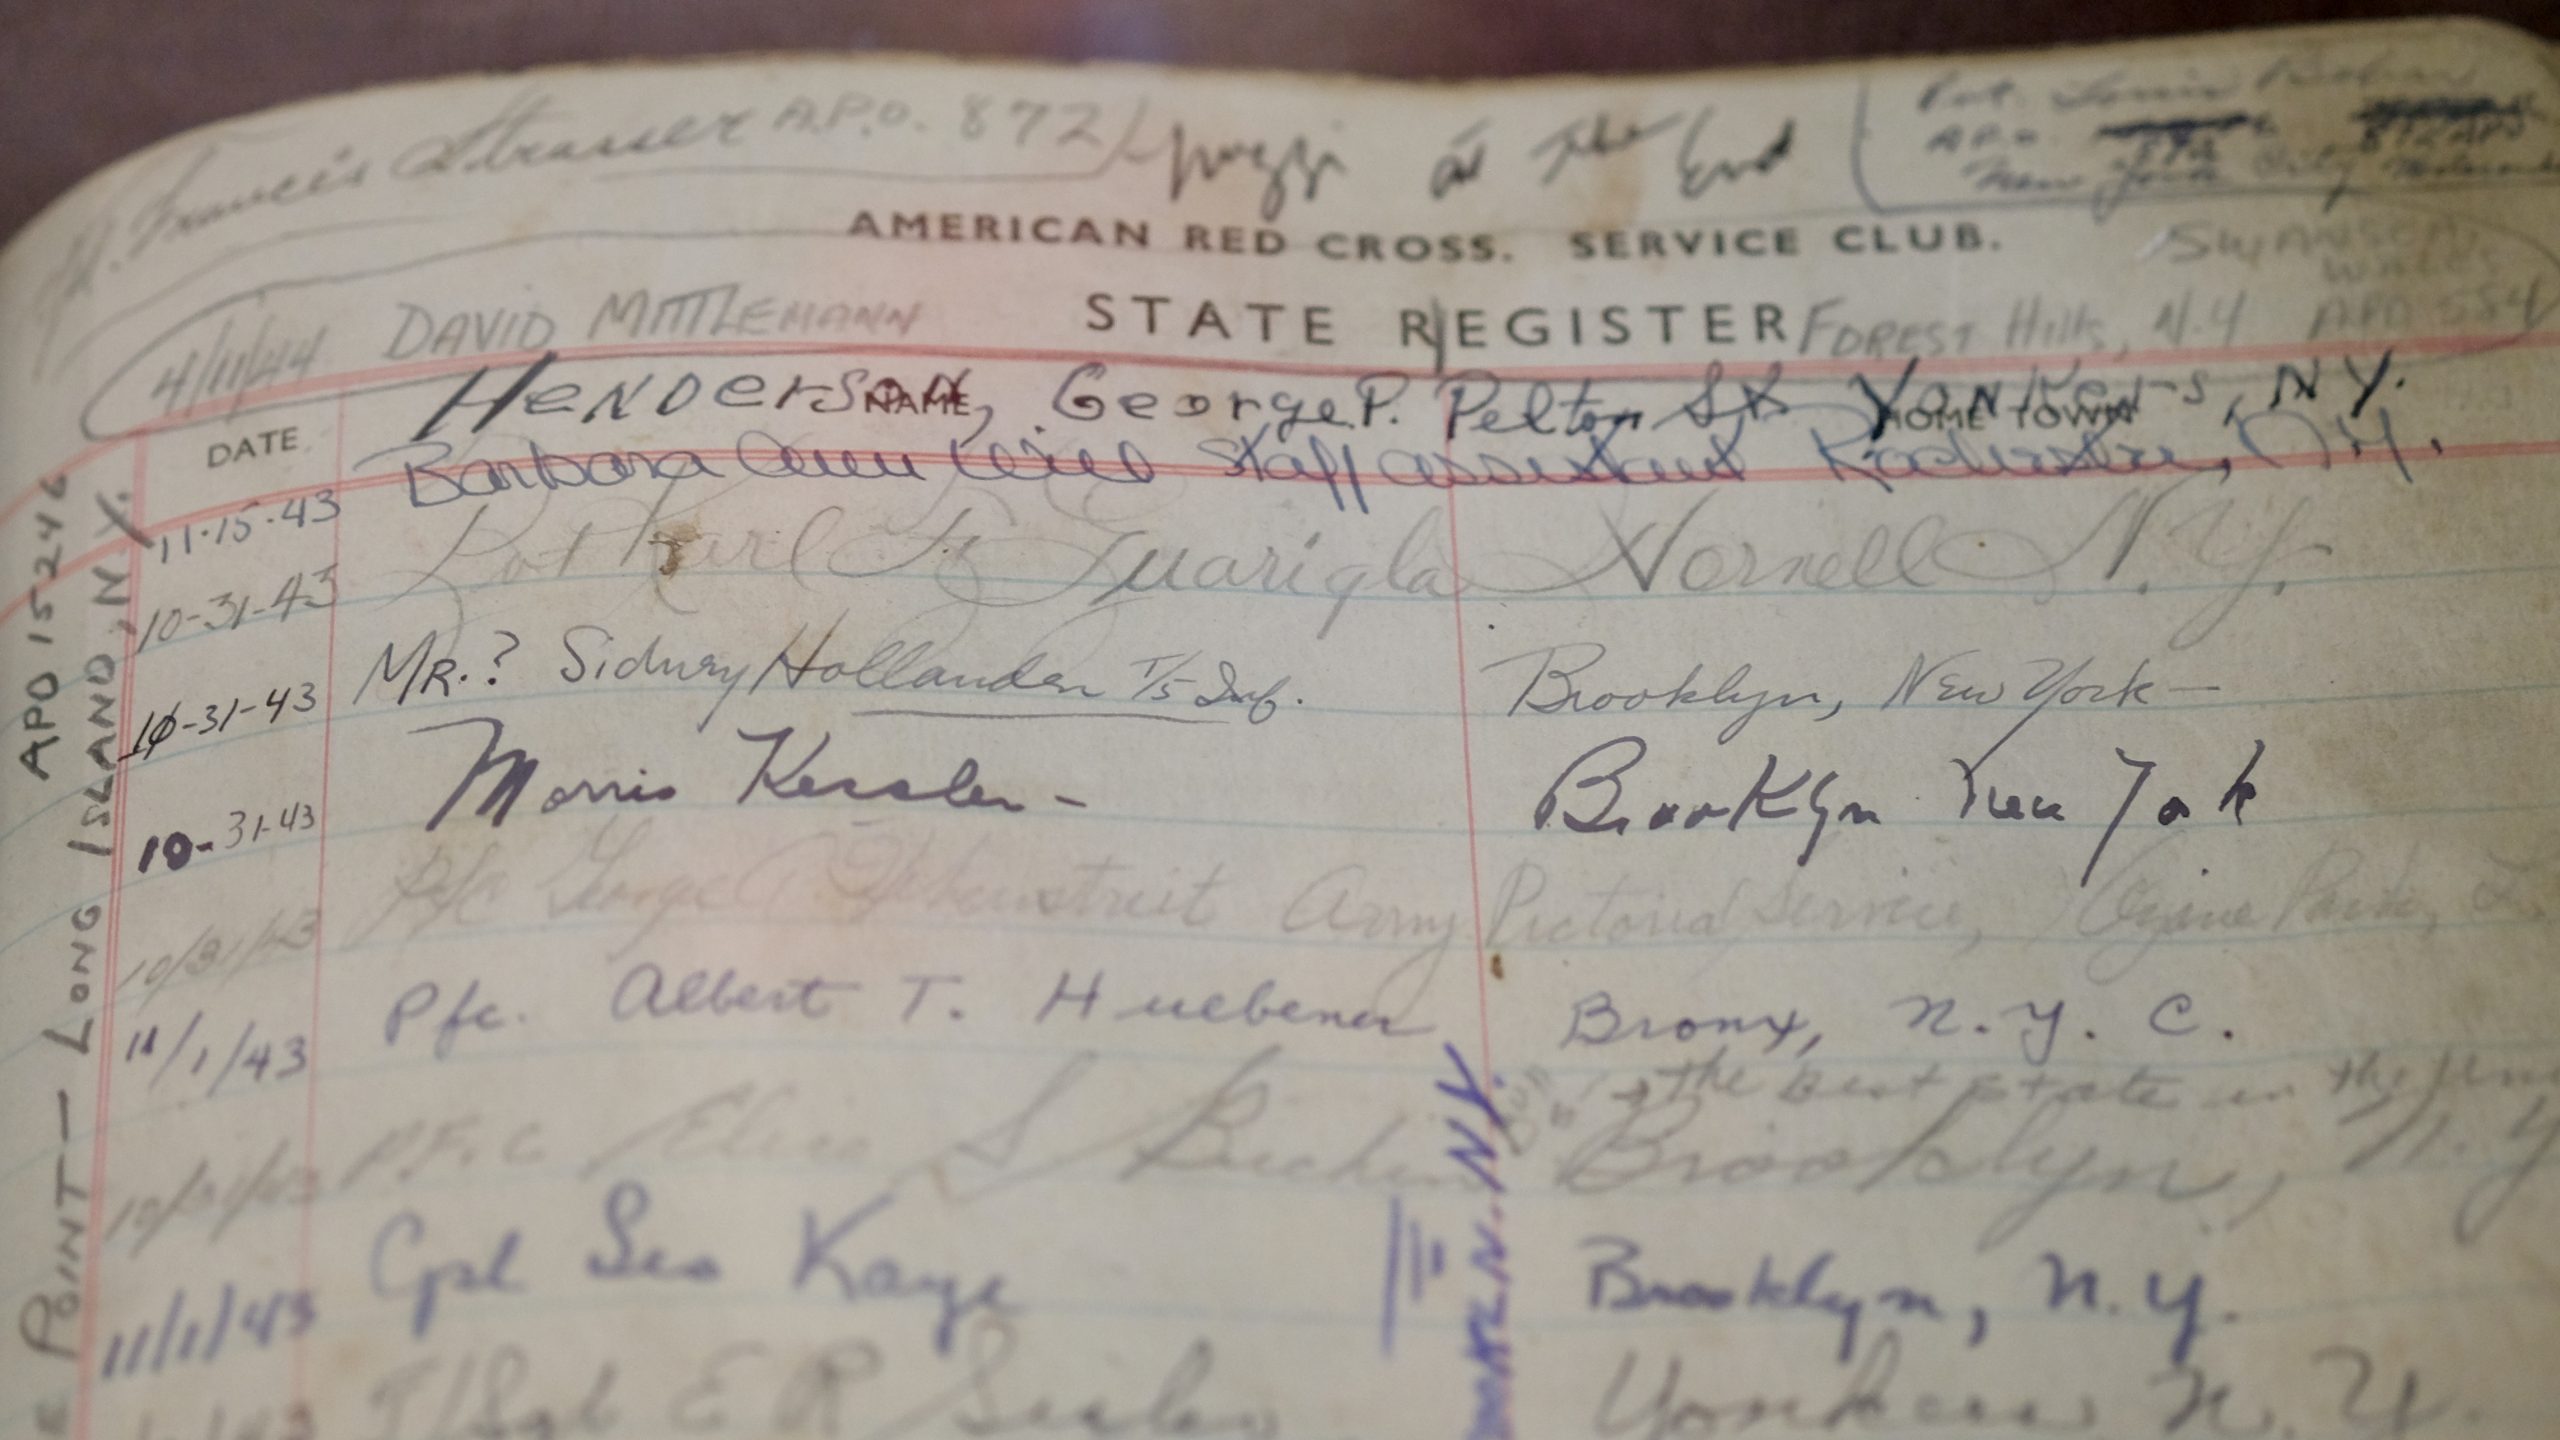 Francis Strasser A.P.O. 872
at The End
Pvt. Louis
A.P.O.
New York City
AMERICAN RED CROSS. SERVICE CLUB.
SWANSEA,
WALES
STATE REGISTER
4/11/44 DAVID MITTLEMANN FOREST Hills, N.Y APO 584
HENDERSON, George P. Pelton St. Yonkers, NY.
DATE NAME HOME TOWN
11-15-43 Barbara Ann Staff assistant Rochester, N.Y.
10-31-43 Pvt Karl F. Guarigla Hornell N.Y.
10-31-43 MR.? Sidney Hollander T/5 Inf. Brooklyn, New York—
10-31-43 Morris Kessler - Brooklyn New York
10/31/43 Pfc George Army Pictorial Service, Ozone Park, L.
11/1/43 Pfc. Albert T. Huebener Bronx, N.Y.C.
the best state in the
10/31/43 P.F.C S Brooklyn, N.Y
11/1/43 Cpl Leo Kaye Brooklyn, N.Y.
T/Sgt E R Yonkers N.Y.
APO 15246
POINT — LONG ISLAND, N.Y.
KLN. N.Y.